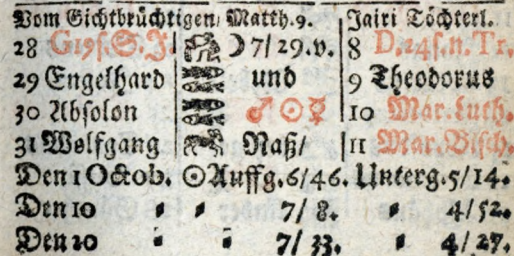 Vom Gichtbrüchtigen/ Matth.9. Jairi Töchterl.
28 G19f.S.J. ☽7/29.v. 8 D.24f.n.Tr.
29 Engelhard und 9 Theodorus
30 Absolon ♂☉☿ 10 Mar.Luth.
31 Wolfgang Naß/ 11 Mar.Bisch.
Den 1 Octob. ☉Auffg.6/46. Unterg.5/14.
Den 10 " " 7/8. " 4/52.
Den 20 " " 7/33. " 4/27.